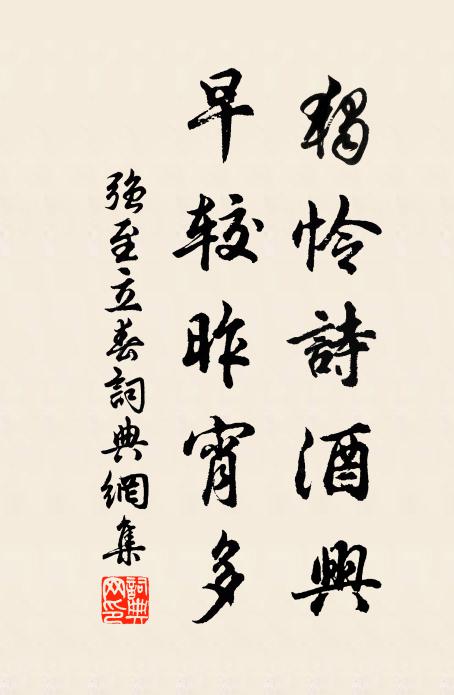 獨怜詩酒興
早較昨宵多
強至立春詞典網集
詞典
網印